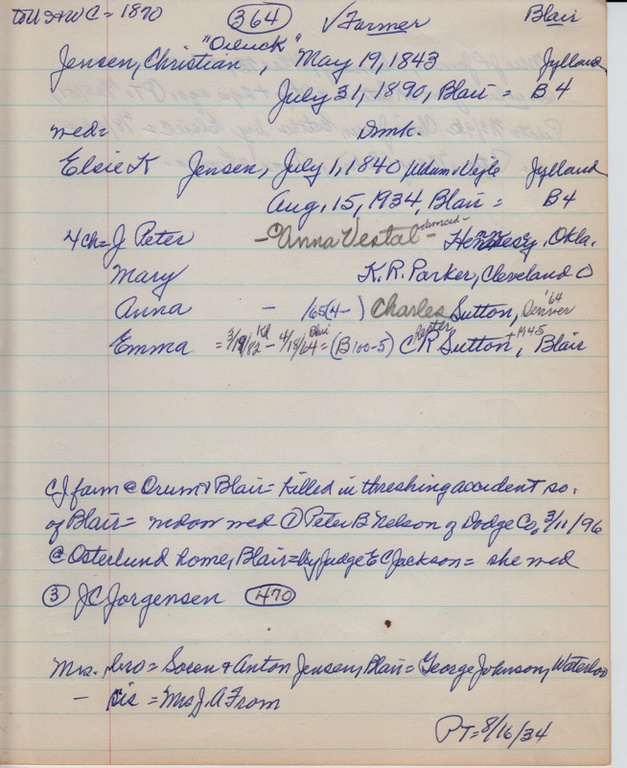 to US & WC = 1870 (364) √ Farmer Blair
"Oluck"
Jensen, Christian, May 19, 1843 Jylland
July 31, 1890, Blair = B4
med = Dmk.
Elsie K Jensen, July 1, 1840, Vejle Jylland
Aug. 15, 1934, Blair = B4
4 ch = J Peter - Anna Vestal - Hennesey, Okla.
Mary K.R. Parker, Cleveland O
Anna - 165(4-) Charles Sutton, Denver '64
Emma = 3/19/82 - 4/18/64 Blair = (B100-5) CR Sutton, + 1945 Blair
CJ farm @ Orum & Blair = killed in threshing accident so.
of Blair = widow med ② Peter B Nelson of Dodge Co, 3/11/96
@ Osterlund home, Blair = by Judge EC Jackson = she med
③ JC Jorgensen (470)
Mrs. bro = Soren & Anton Jensen, Blair = George Johnson, Waterloo
- sis = Mrs J.A From
PT = 8/16/34